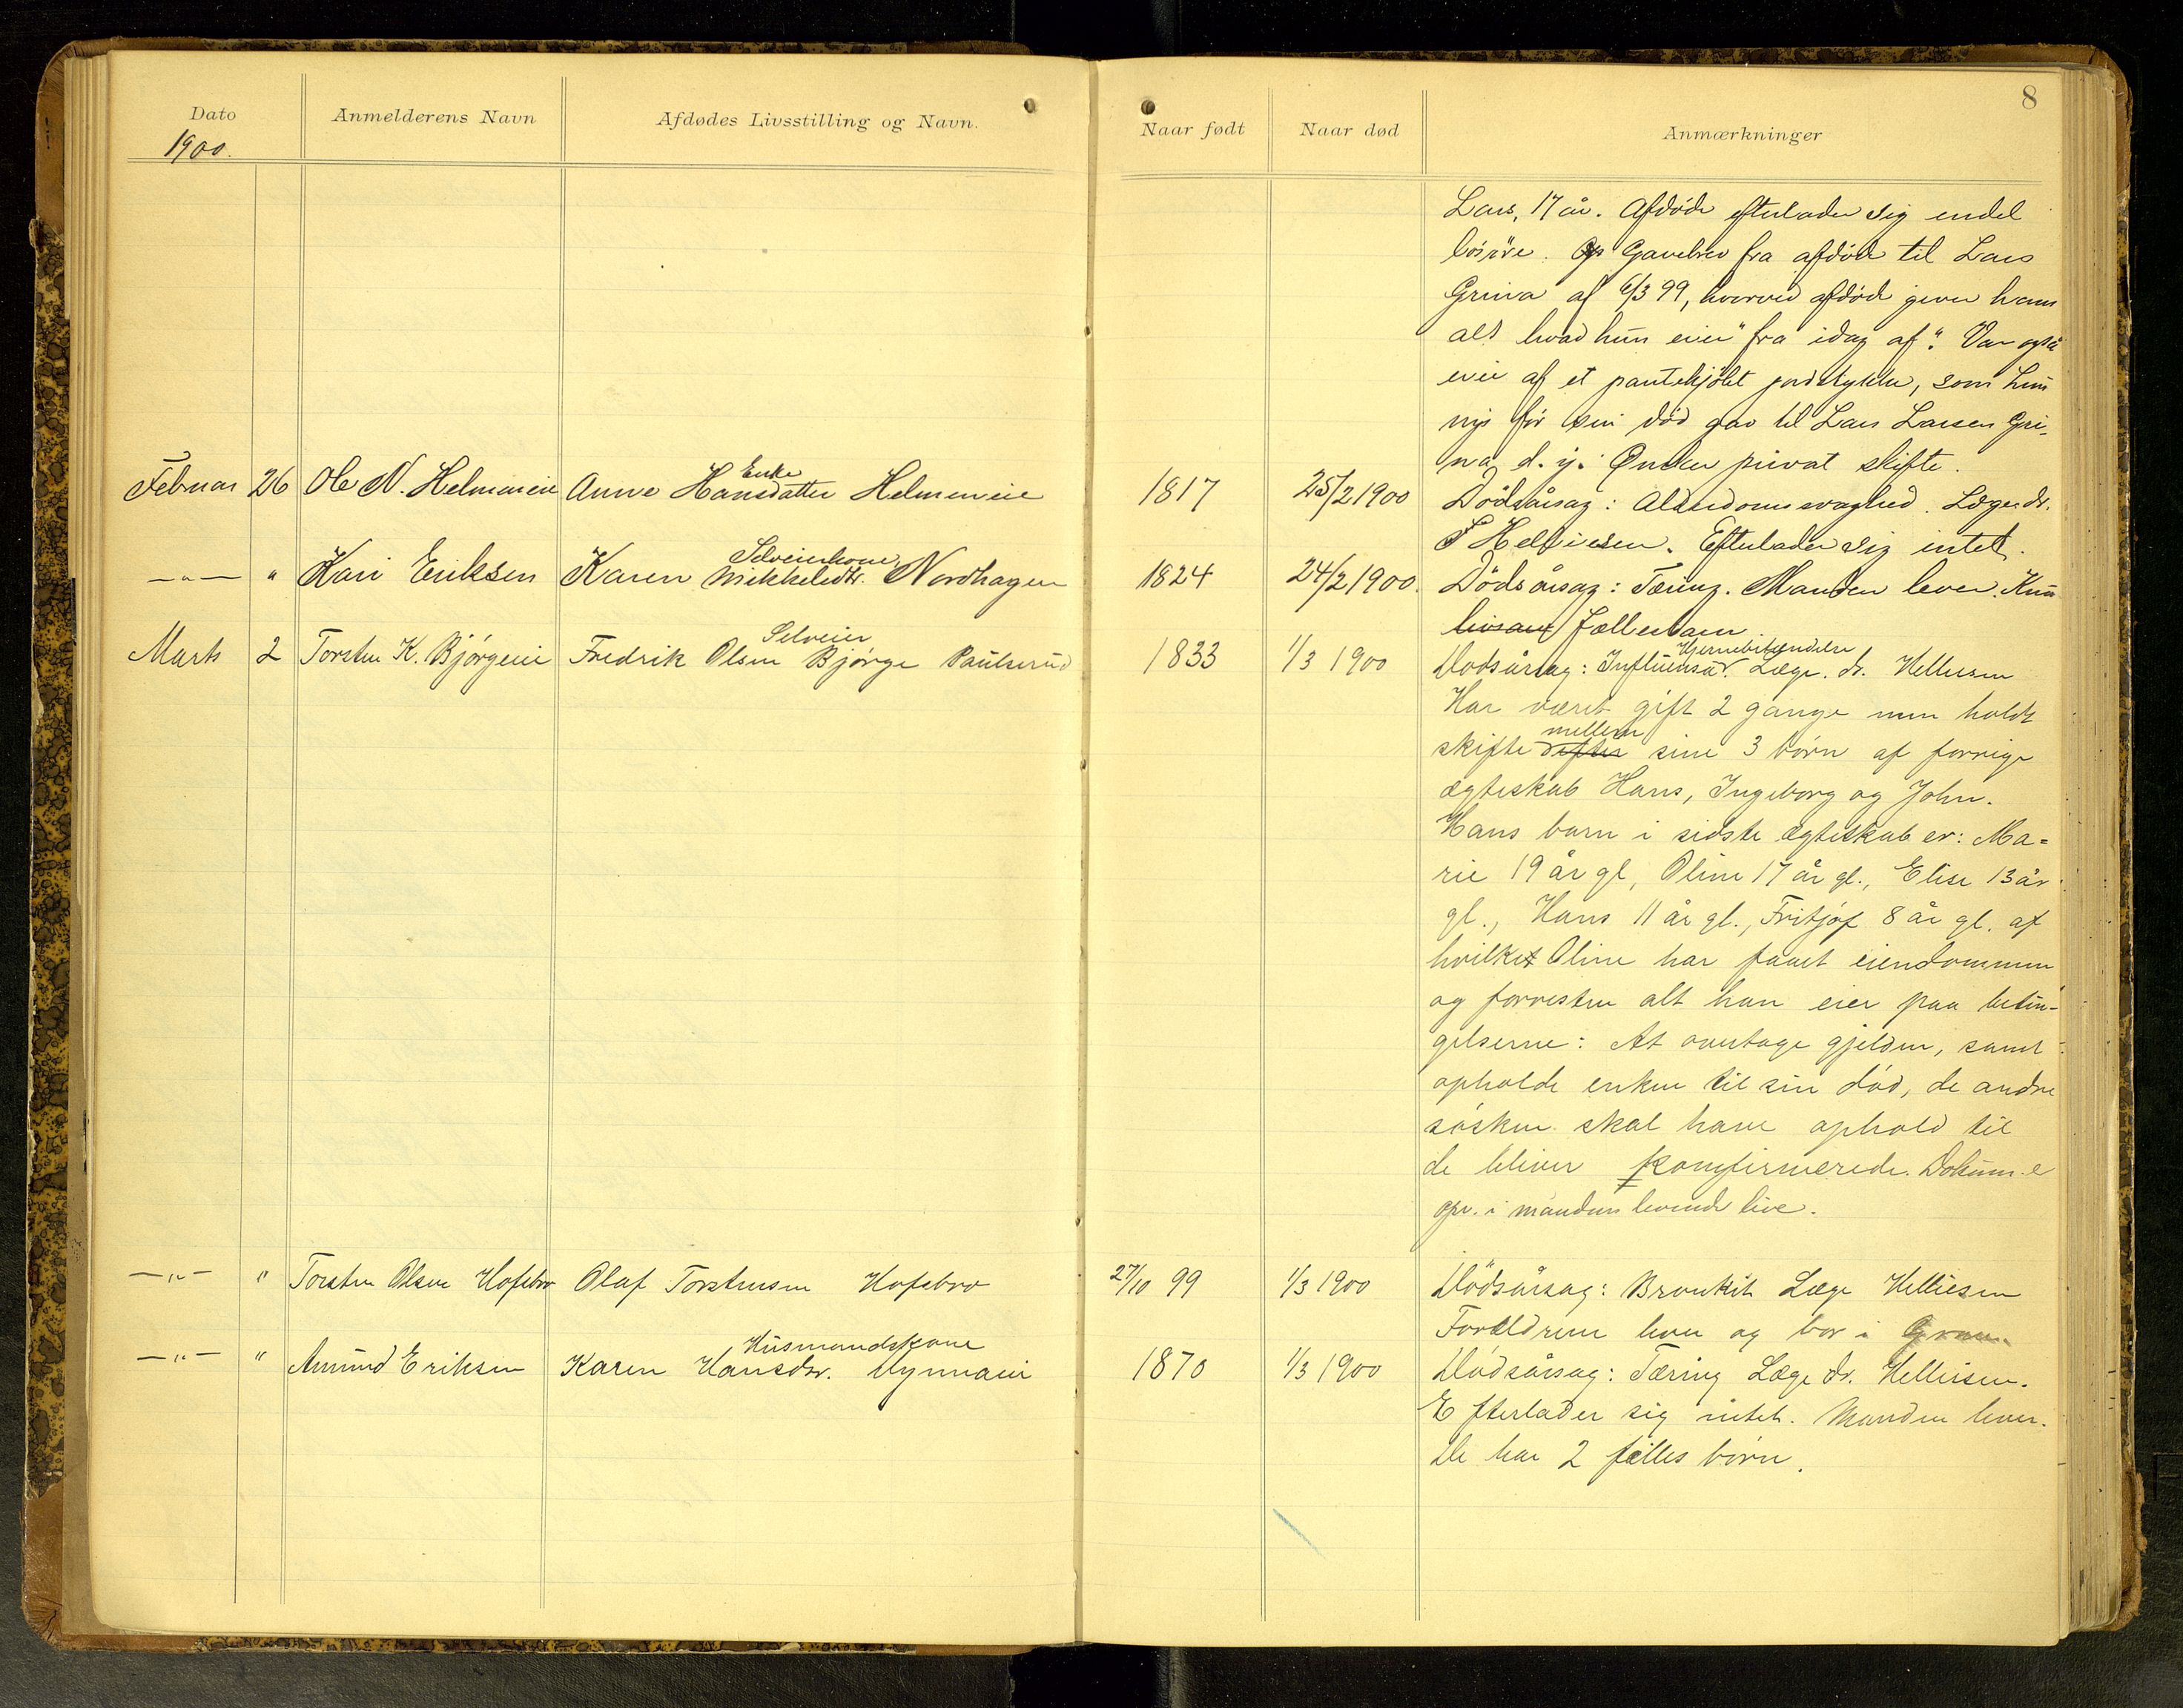 8
Dato Anmelderens Navn Afdødes Livsstilling og Navn. Naar født Naar død Anmærkninger
1900.
Lars, 17 år. Afdøde efterlader sig endel
lösöre. Gavebrev fra afdöde til Lars
Grina af 6/3 99, hvorved afdöde giver ham
alt hvad hun eier "fra idag af". Var også
eier af et pantekjöbt jordstykke, som hun
nys för sin död gav til Lars Larsen Gri-
na d. y. Önsker privat skifte.
Enke
Februar 26 Ole N. Helmeneie Anne Hansdatter Helmeneie 1817 25/2 1900 Dödsårsag: Alderdomssvaghed. Læge dr.
S Helliesen. Efterlader sig intet.
Selveierkone
—"— " Kari Eriksen Karen Mikkelsdtr. Nordhagen 1824 24/2 1900. Dödsårsag: Tæring. Manden lever. Kun
livsarv fællesbarn
Selveier Hjernebetændelse
Marts 2 Torsten K. Bjørgeeie Fredrik Olsen Bjørge Paulsrud 1833 1/3 1900 Dödsårsag: Influensa. Læge. dr. Helliesen
Har været gift 2 gange men holdt
mellem
skifte efter sine 3 börn af forrige
ægteskab Hans, Ingeborg og John.
Hans barn i sidste ægteskab er: Ma=
rie 19 år gl, Oline 17 år gl., Elise 13 år
gl., Hans 11 år gl., Fritjof 8 år gl. af
hvilket Oline har faaet eiendommen
og forresten alt han eier paa betin-
gelserne: At overtage gjelden, samt
opholde enken til sin död, de andre
sösken skal have ophold til
de bliver konfirmerede. Dokum. e
opr. i mandens levende live.
—"— " Torsten Olsen Hofsbro Olaf Torstensen Hofsbro 27/10 99 1/3 1900 Dödsårsag: Bronkit Læge Helliesen
Forældrene lever og bor i Gran.
Husmandskone
—"— " Amund Eriksen Karen Hansdtr. Hynnaeie 1870 1/3 1900 Dödsårsag: Tæring Læge dr. Helliesen.
Efterlader sig intet. Manden lever.
De har 2 fælles börn.